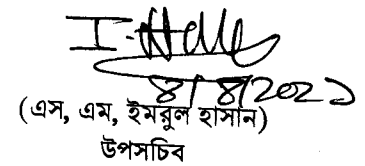 8/8/2022
(এস, এম, ইমরুল হাসান)
উপসচিব